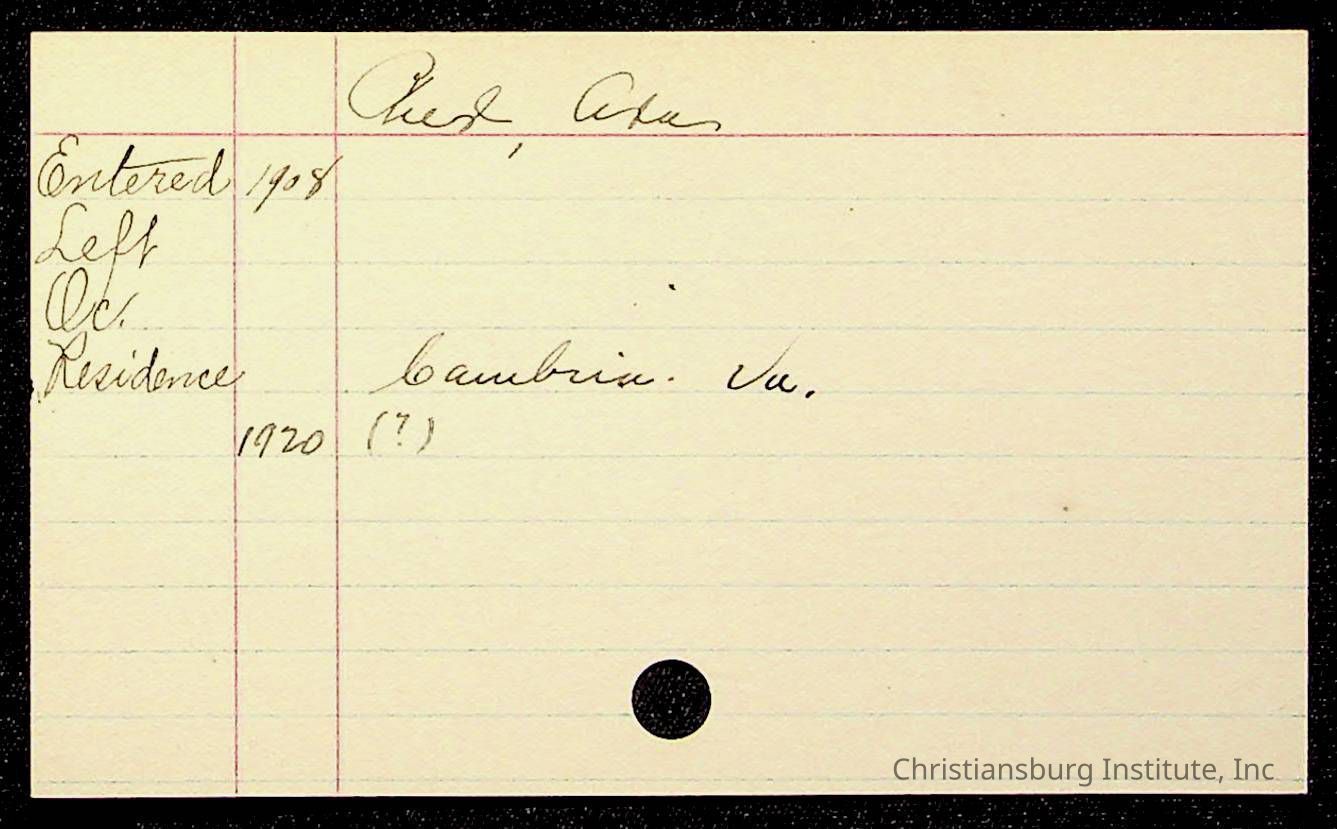 Entered 1908
Left
Oc.
Residence Cambria. Va.
1920 (?)
Christiansburg Institute, Inc